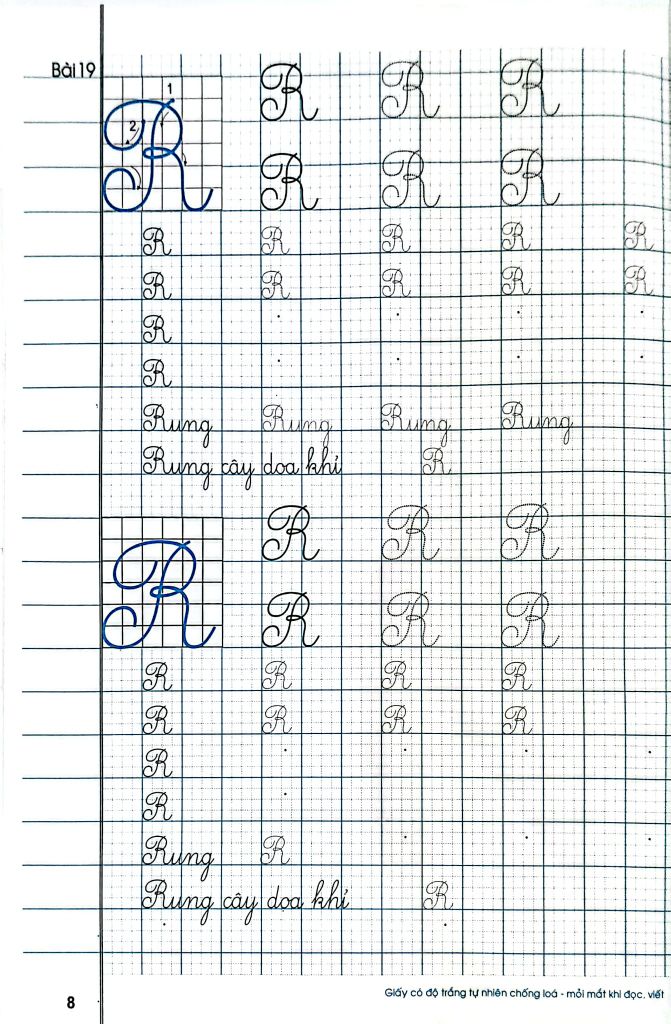 Bài 19
1
2
R R R
R R R
R R R R R
R R R R R
R
R
Rung Rung Rung Rung
Rung cây dọa khỉ R
R R R
R R R
R R R R R
R R R R
R R R R
R
R
Rung R
Rung cây dọa khỉ R
Giấy có độ trắng tự nhiên chống loá - mỏi mắt khi đọc, viết
8